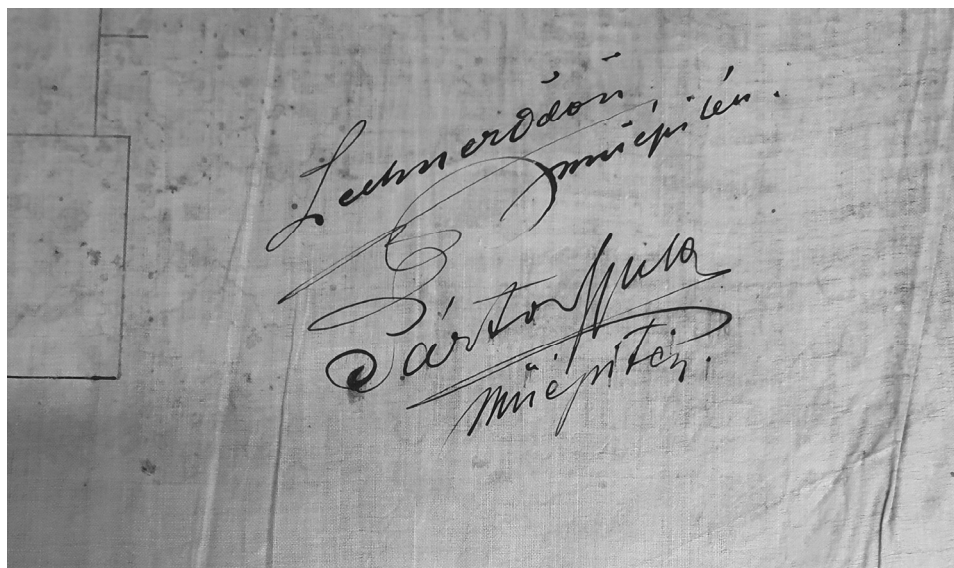 Lechner Ödön
műépítész.
Pártos Gyula
műépítész.